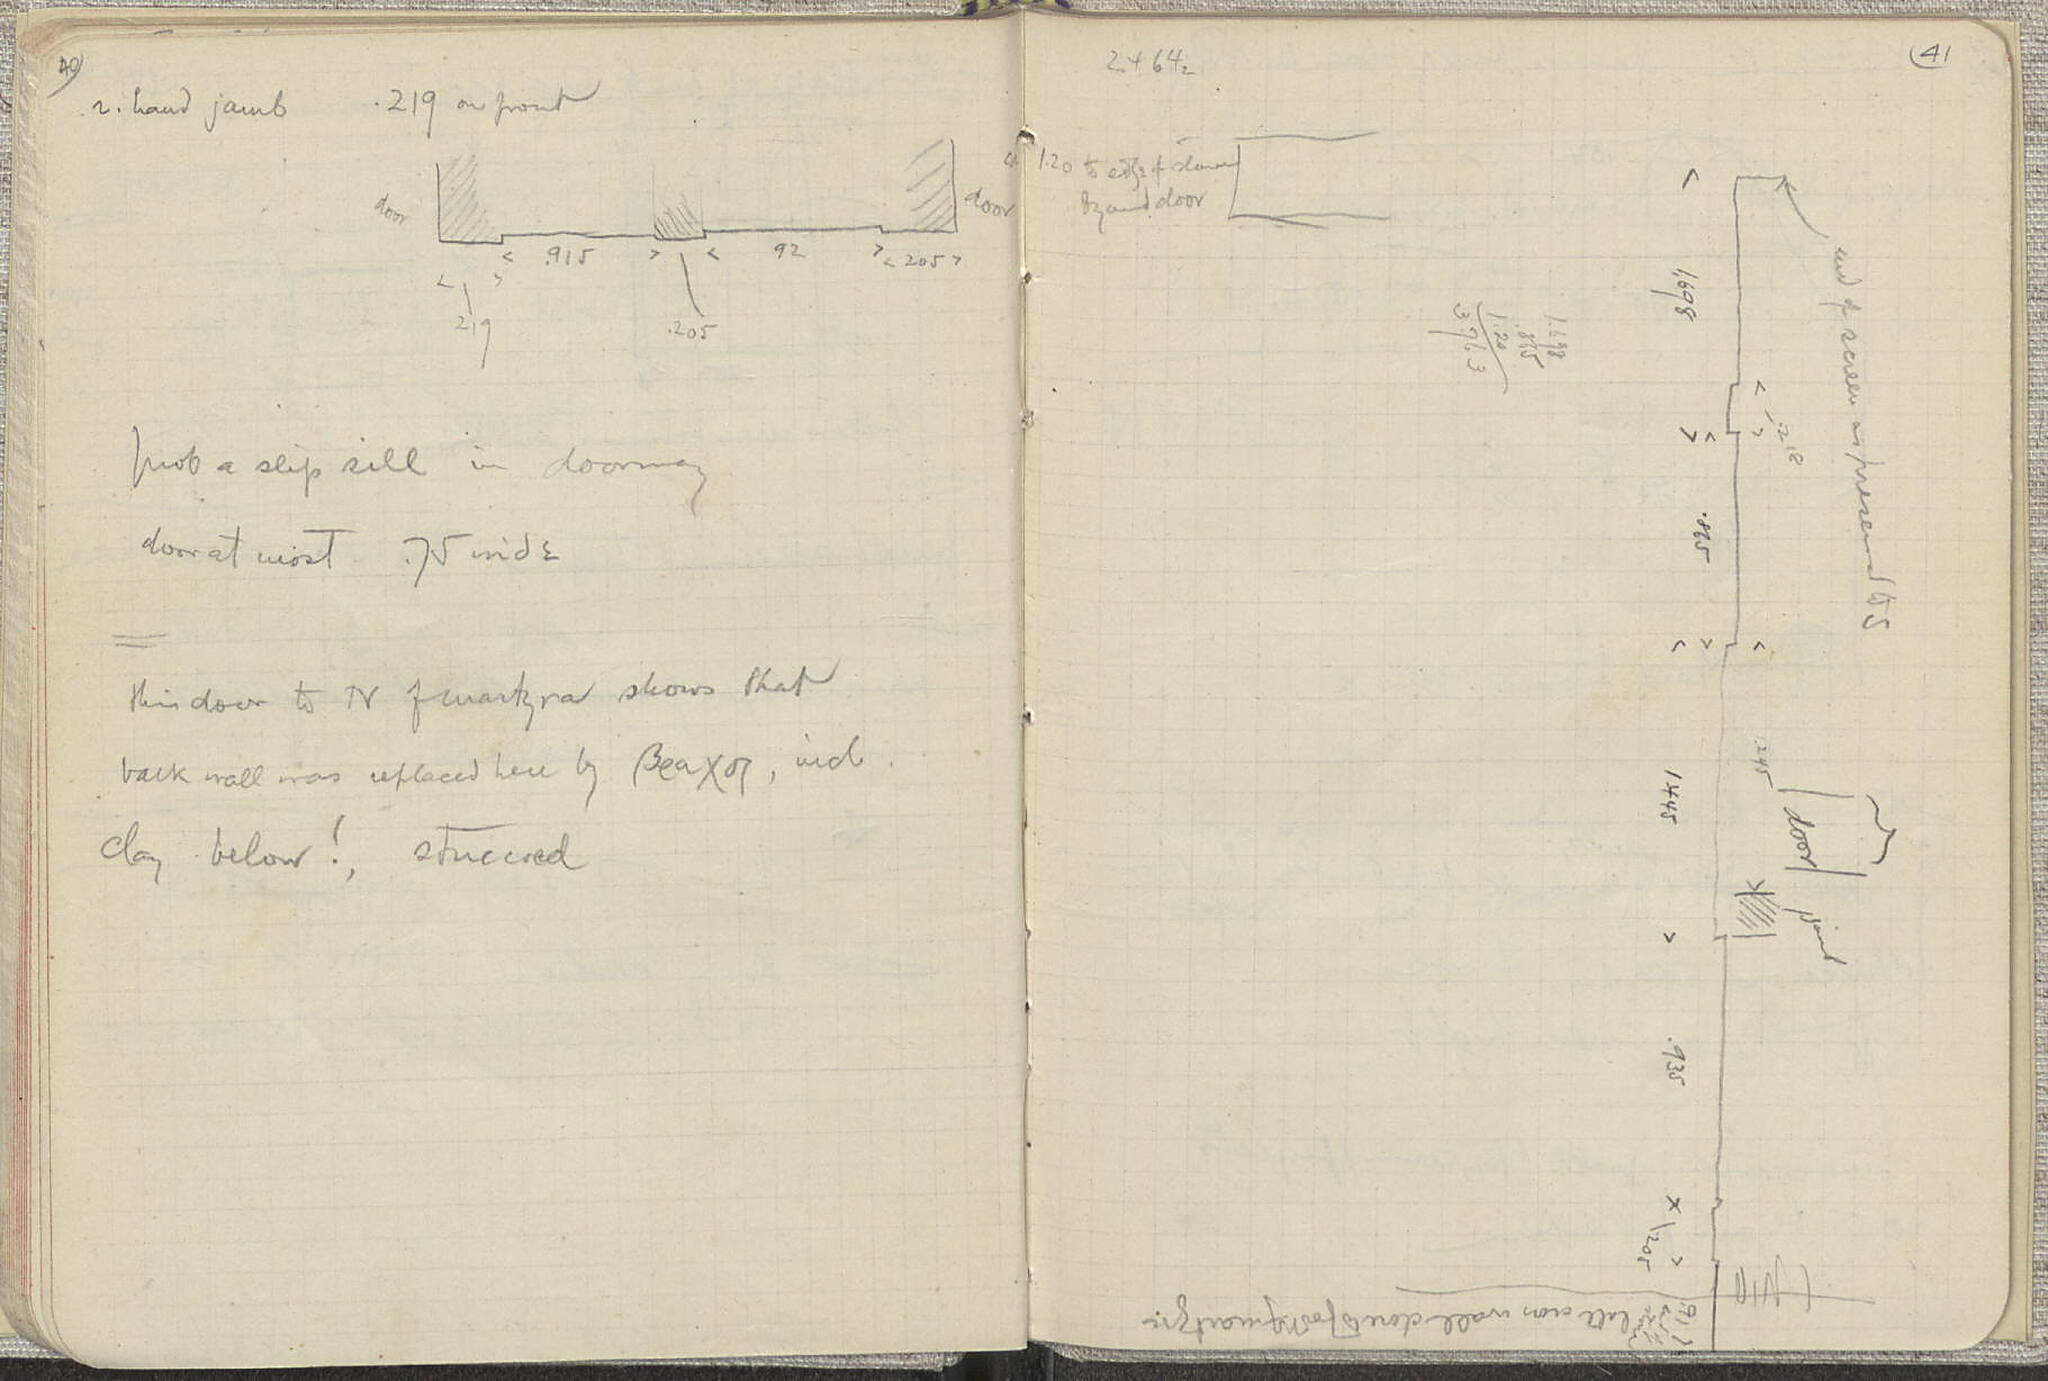 40
r. hand jamb .219 on front
door
door
.915
92
205
219
.205
prob a slip sill in doorway
door at most .75 wide
this door to N of martyra shows that
back wall was replaced here by
clay below!, stuccoed
41
2.4642
1.20 to edge of
beyond door
1.698
.865
1.20
3.763
end of screen as preserved to S
1.698
.218
.865
.245
1.445
door
jamb
.935
.205